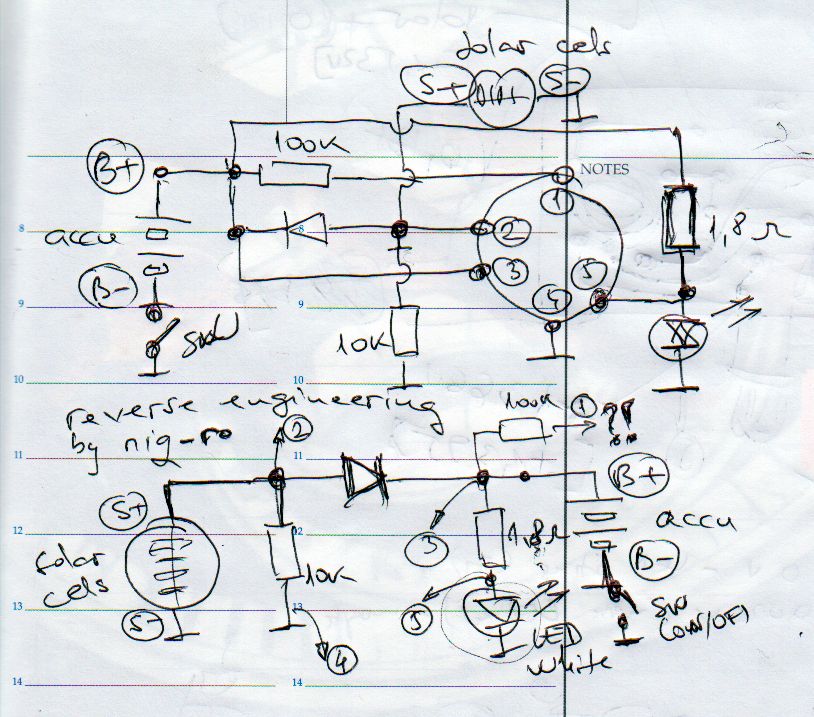 solar cels
S+
S-
100K
B+
NOTES
1
8
accu
8
2
1,8 Ω
3
5
B-
9
9
4
SW
10K
10
10
reverse engineering
100K
1
??
by nig-ro
2
11
11
B+
S+
12
12
1,8Ω
accu
3
B-
solar
cels
10K
13
13
S-
5
SW
(ON/OFF)
LED
white
4
14
14